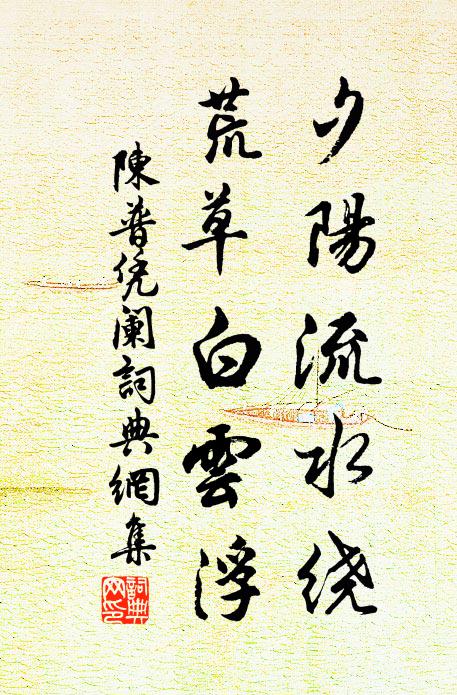 夕陽流水绕
荒草白雲浮
陳普凭阑詞典網集
詞典网印